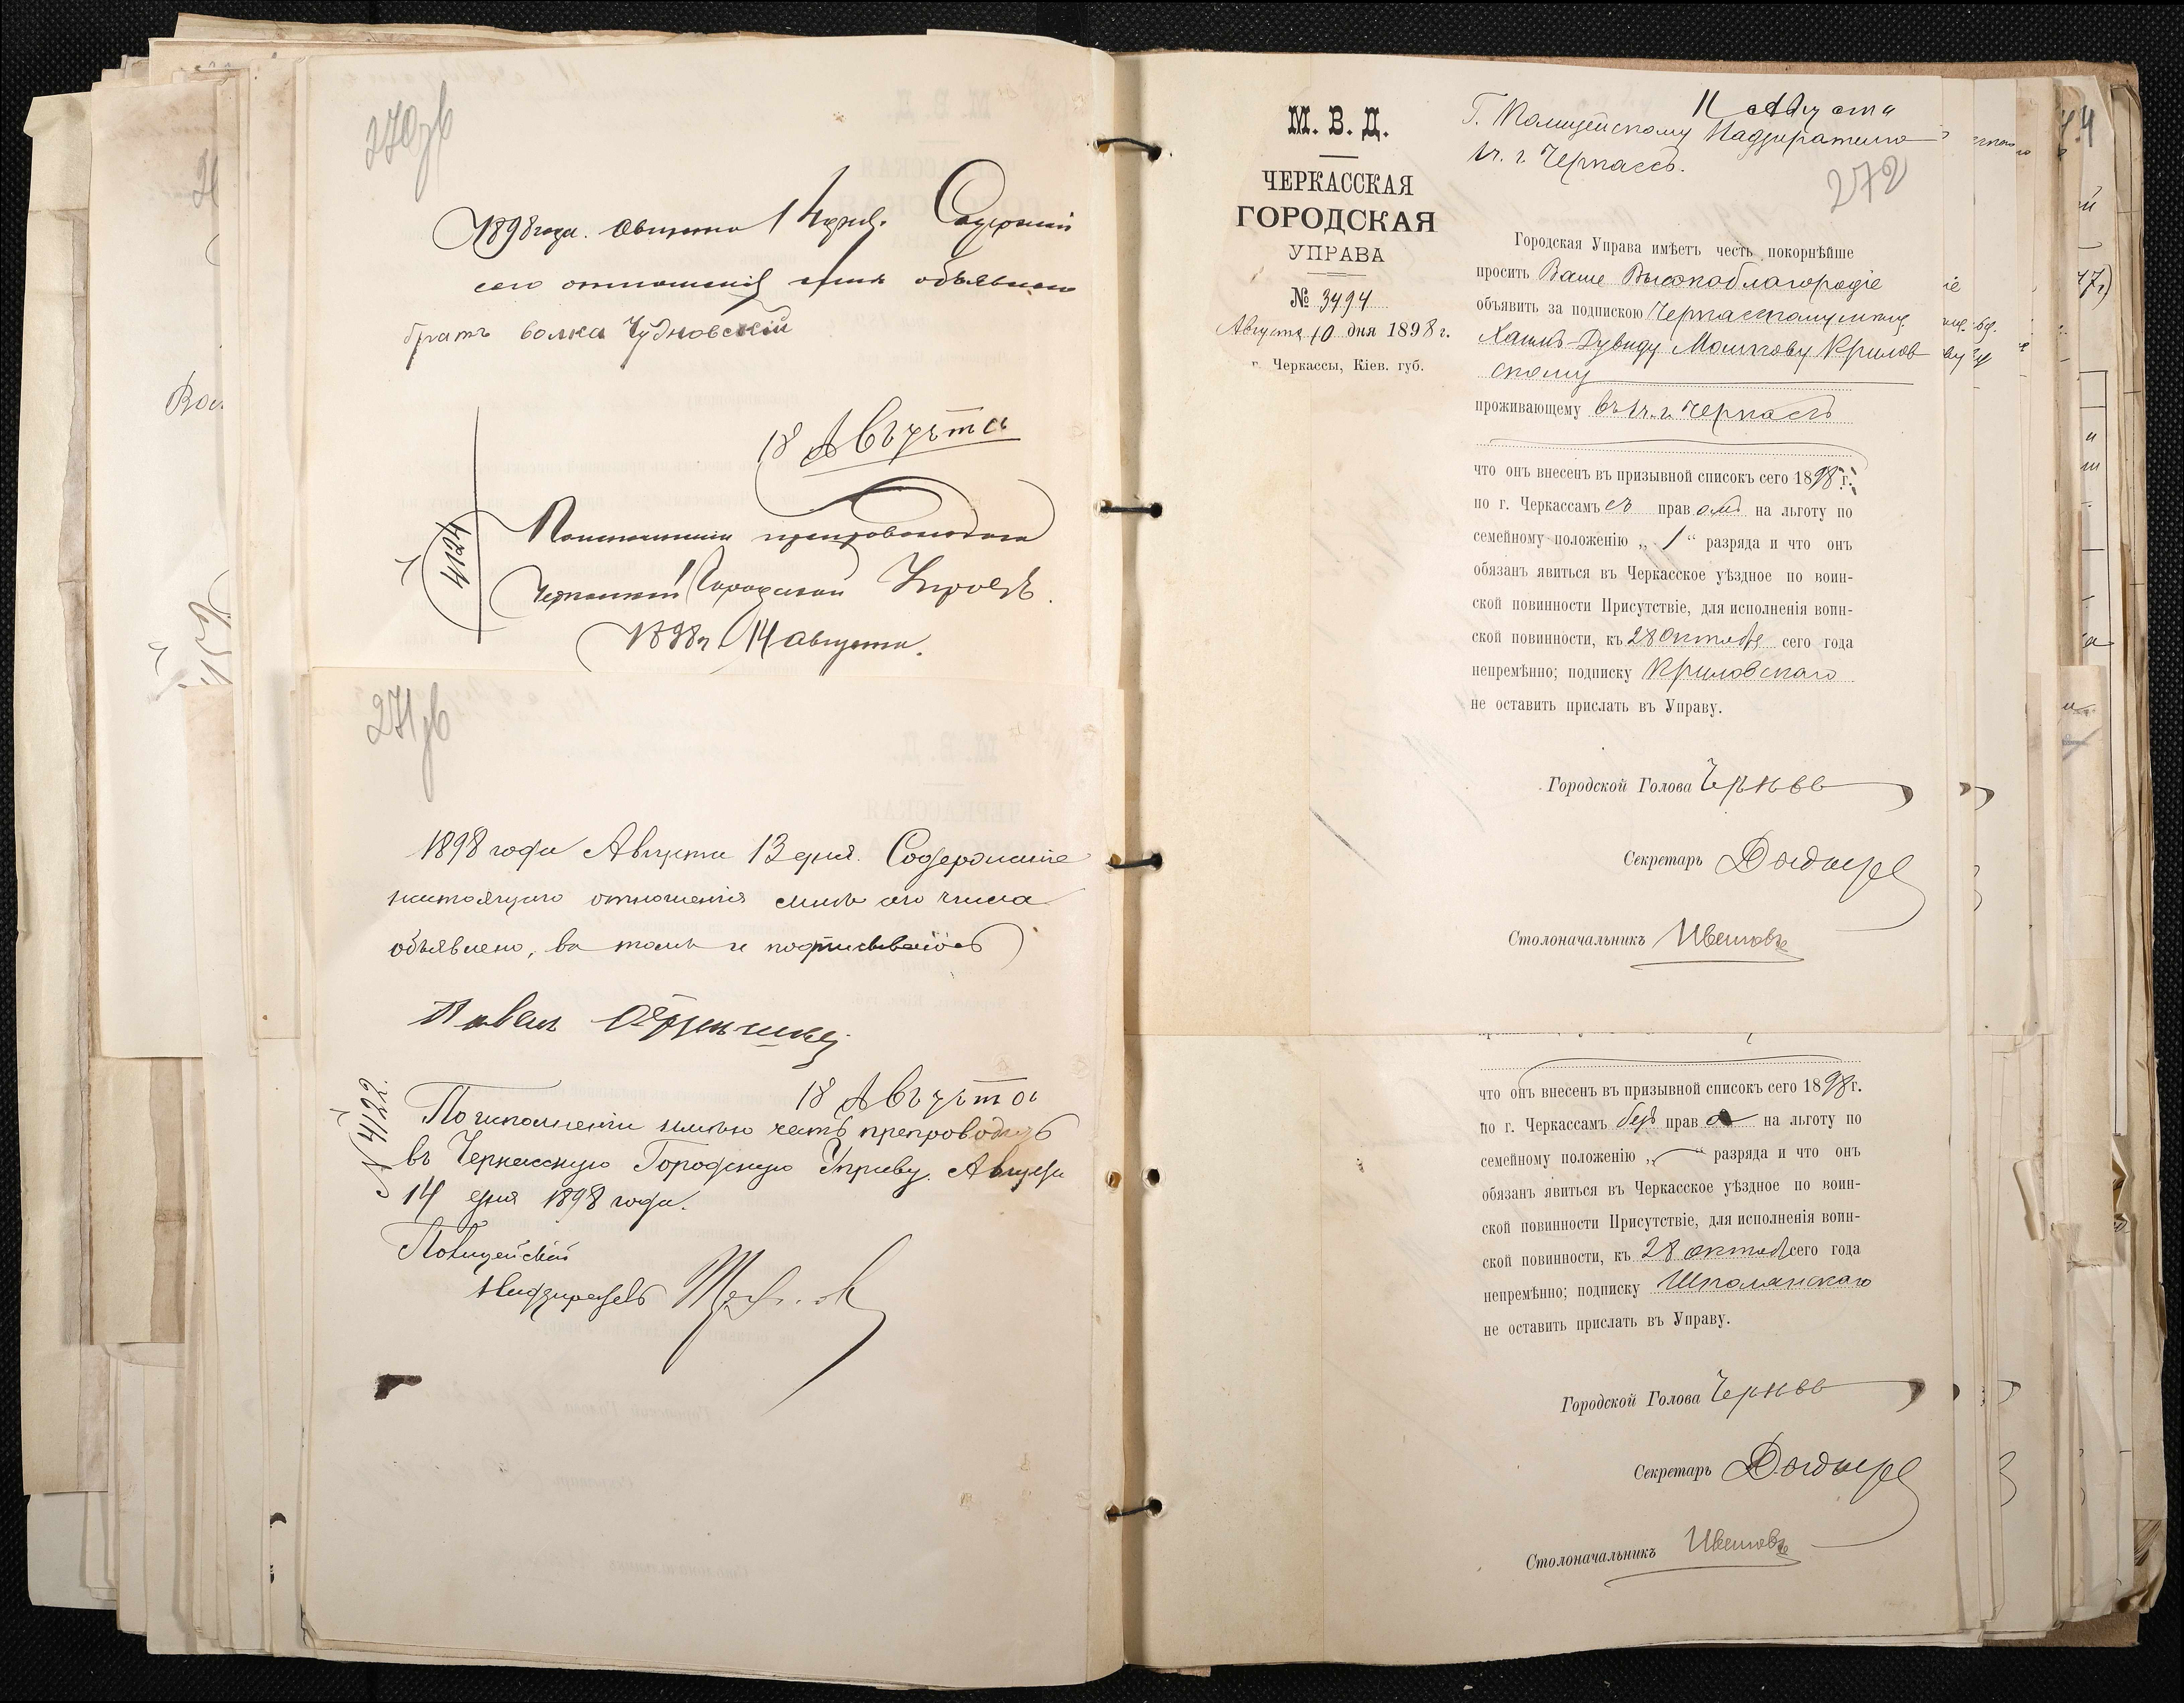 270 об
1898 года. августа 14 дня. Содержание
сего отношения мне объявлено
братъ волка Чудновский
18 Августа
4124
По исполнении препровождаю
Черкасской Городской Управе.
1898 г. 14 августа.
271 об
1898 года Августа 13 дня. Содержание
настоящаго отношенія мнѣ сего числа
объявлено, въ томъ и подписываюсь
Павелъ
18 Августа
№ 4122.
По исполненіи имѣю честь препроводить
въ Черкасскую Городскую Управу. Августа
14 дня 1898 года.
Полицейскій
Надзиратель
М. В. Д.
ЧЕРКАССКАЯ
ГОРОДСКАЯ
УПРАВА
№ 3494
Августа 10 дня 1898 г.
г. Черкассы, Кіев. губ.
11 Августа
Г. Полицейскому Надзирателю
1 ч. г. Черкассъ.
272
Городская Управа имѣетъ честь покорнѣйше
просить Ваше Высокоблагородіе
объявить за подпискою Черкасскому мѣщ.
Хаимъ-Дувиду Мошкову Крилов
скому
проживающему въ 1 ч. г. Черкассъ
что онъ внесенъ въ призывной списокъ сего 1898 г.
по г. Черкассамъ съ правомъ на льготу по
семейному положенію „1“ разряда и что онъ
обязанъ явиться въ Черкасское уѣздное по воин-
ской повинности Присутствіе, для исполненія воин-
ской повинности, къ 28 Октября сего года
непремѣнно; подписку Криловскаго
не оставить прислать въ Управу.
Городской Голова
Секретарь
Столоначальникъ
что онъ внесенъ въ призывной списокъ сего 1898 г.
по г. Черкассамъ безъ права на льготу по
семейному положенію „—“ разряда и что онъ
обязанъ явиться въ Черкасское уѣздное по воин-
ской повинности Присутствіе, для исполненія воин-
ской повинности, къ 28 октяб сего года
непремѣнно; подписку Шполянскаго
не оставить прислать въ Управу.
Городской Голова
Секретарь
Столоначальникъ